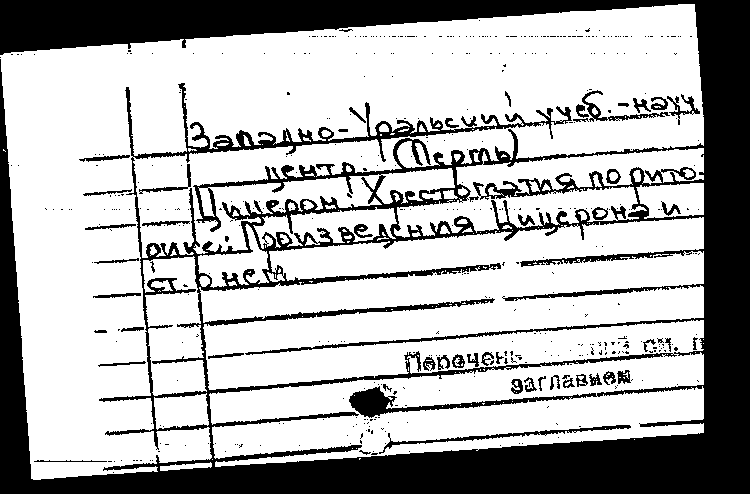 Западно-Уральский учеб.-науч.
центр. (Пермь)
Цицерон: Хрестоматия по рито-
рике: Произведения Цицерона и
ст. о нем.
Перечень см.
заглавием